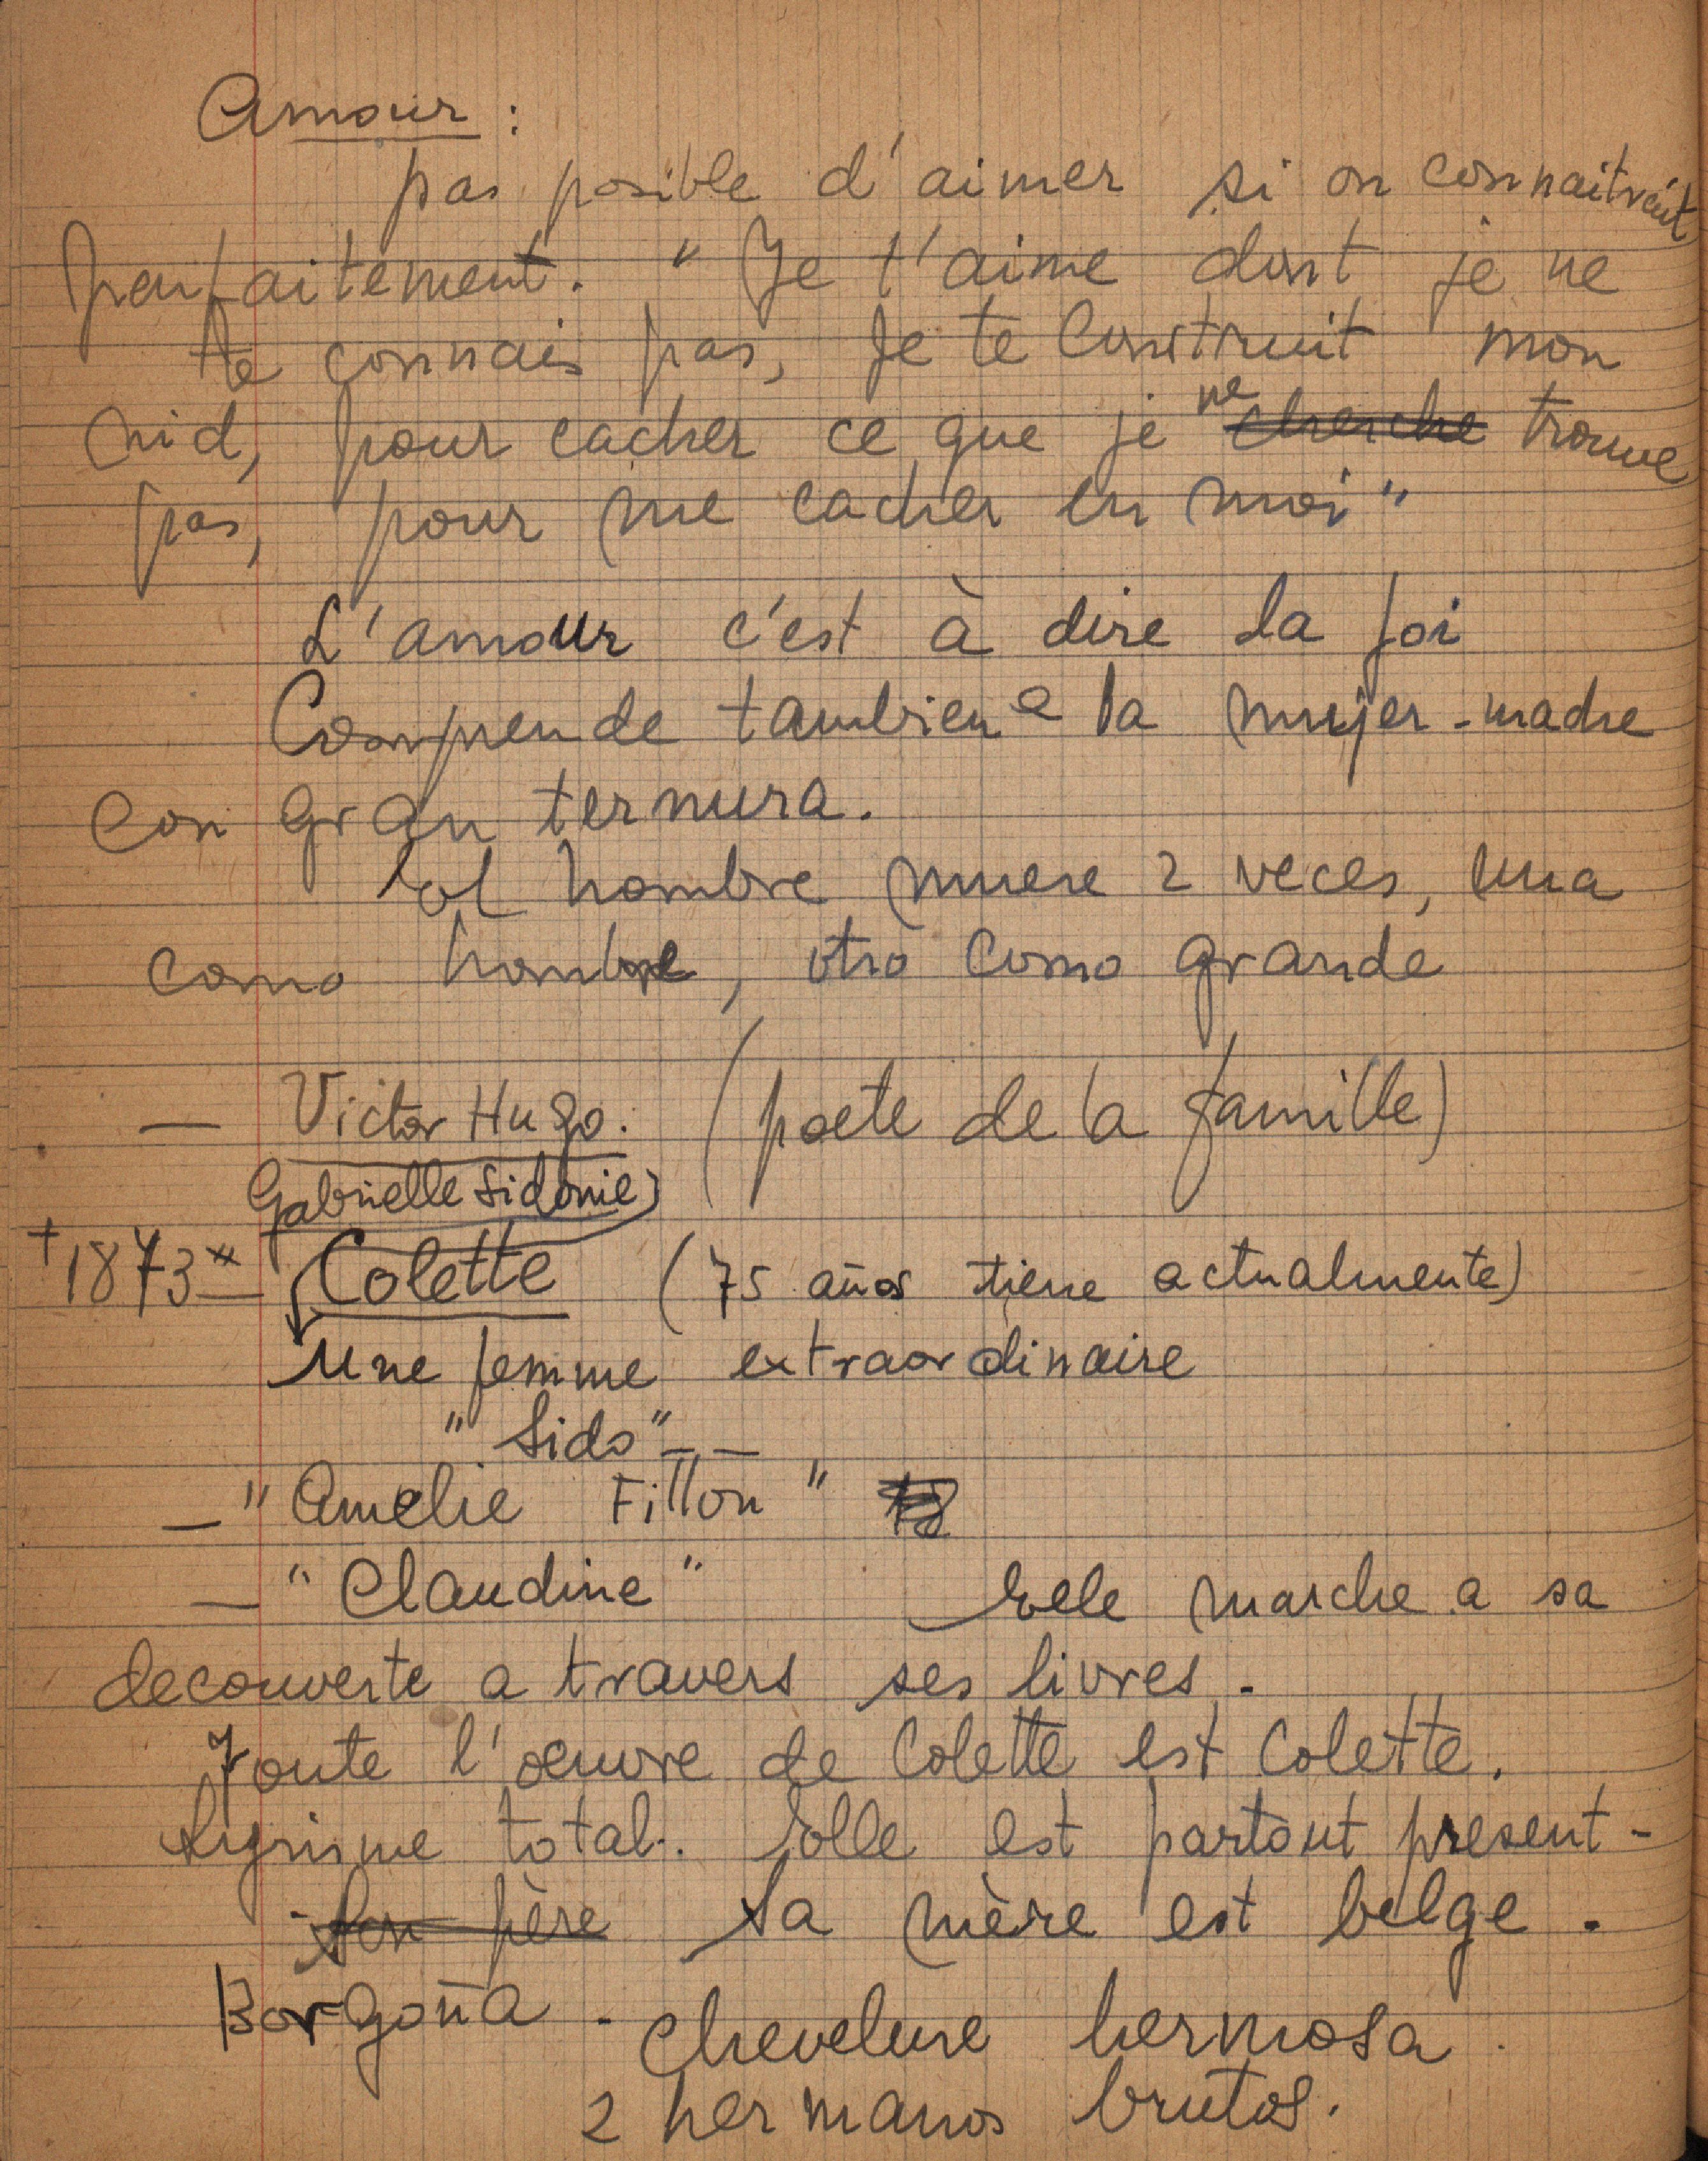 Amour :
pas posible d'aimer si on connaitrait
parfaitement. " Je t'aime dont je ne
te connais pas, je te construit mon
nid, pour cacher ce que je ne cherche trouve
pas, pour me cacher en moi "
L'amour c'est à dire la foi
Comprende tambien a la mujer-madre
con gran ternura.
El hombre muere 2 veces, una
como hombre, otro como grande
— Victor Hugo. (poete de la famille)
Gabrielle Sidonie)
+1873* — Colette (75 años tiene actualmente)
Une femme extraordinaire
" Sido " — —
— " Amelie Fillon "
— " Claudine " Elle marche a sa
decouverte a travers ses livres .
Toute l'oeuvre de Colette est Colette.
Lyrisme total. Elle est partout present -
- Son père Sa mère est belge .
Borgoña . Chevelure hermosa .
2 hermanos brutos.